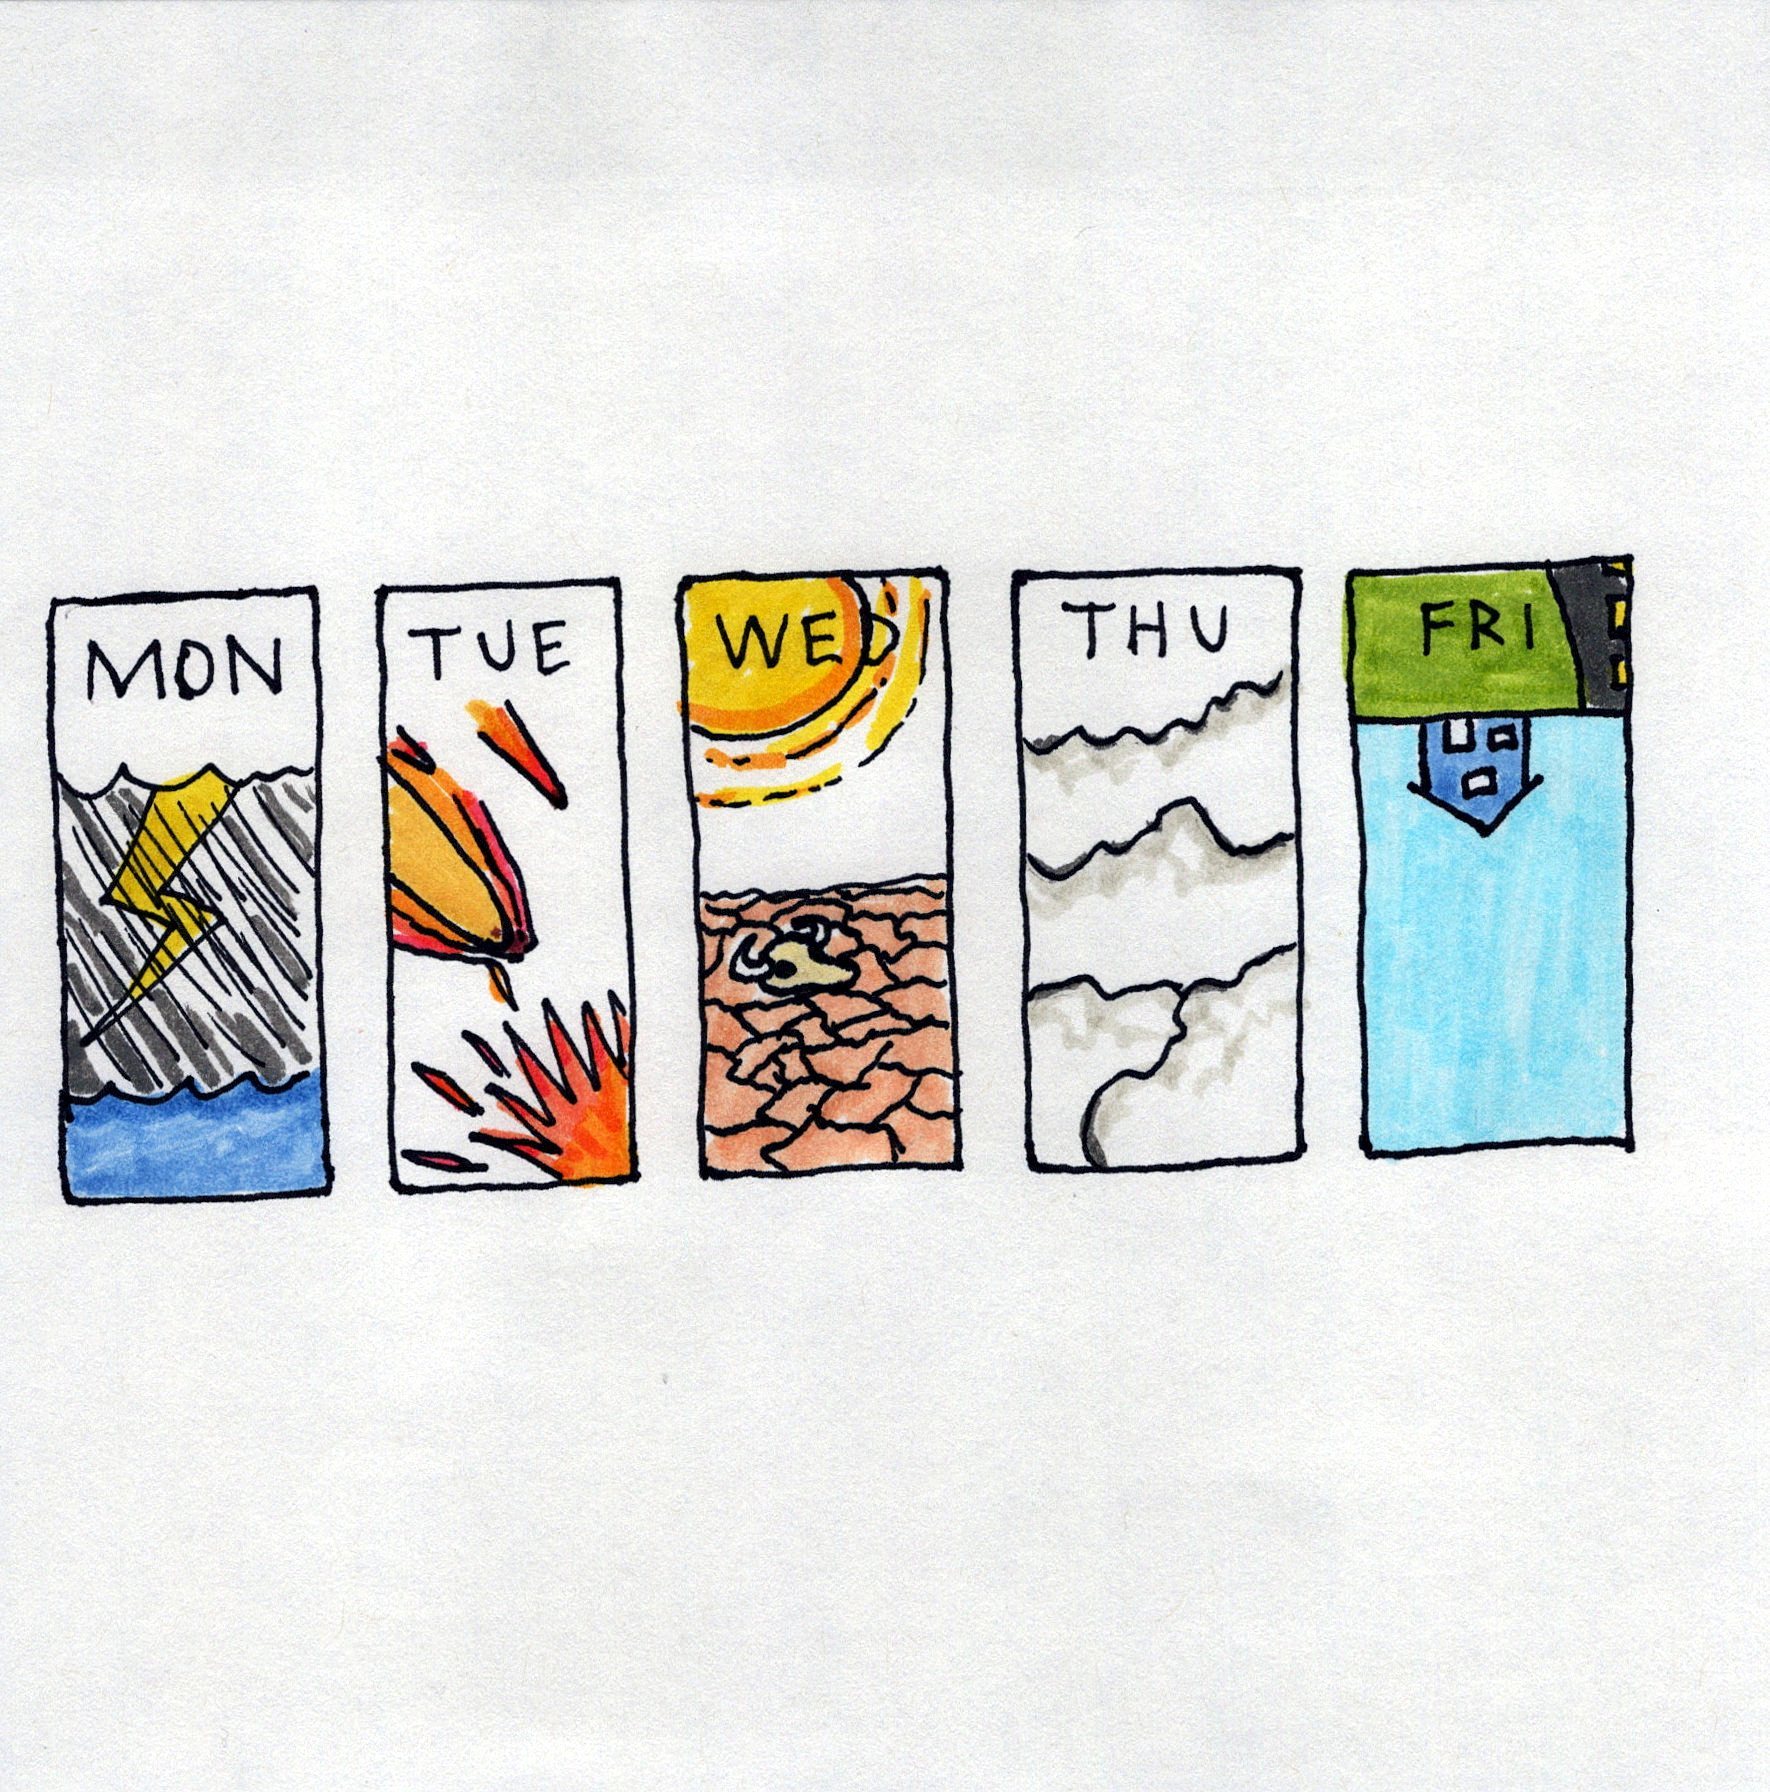 MON
TUE
WED
THU
FRI